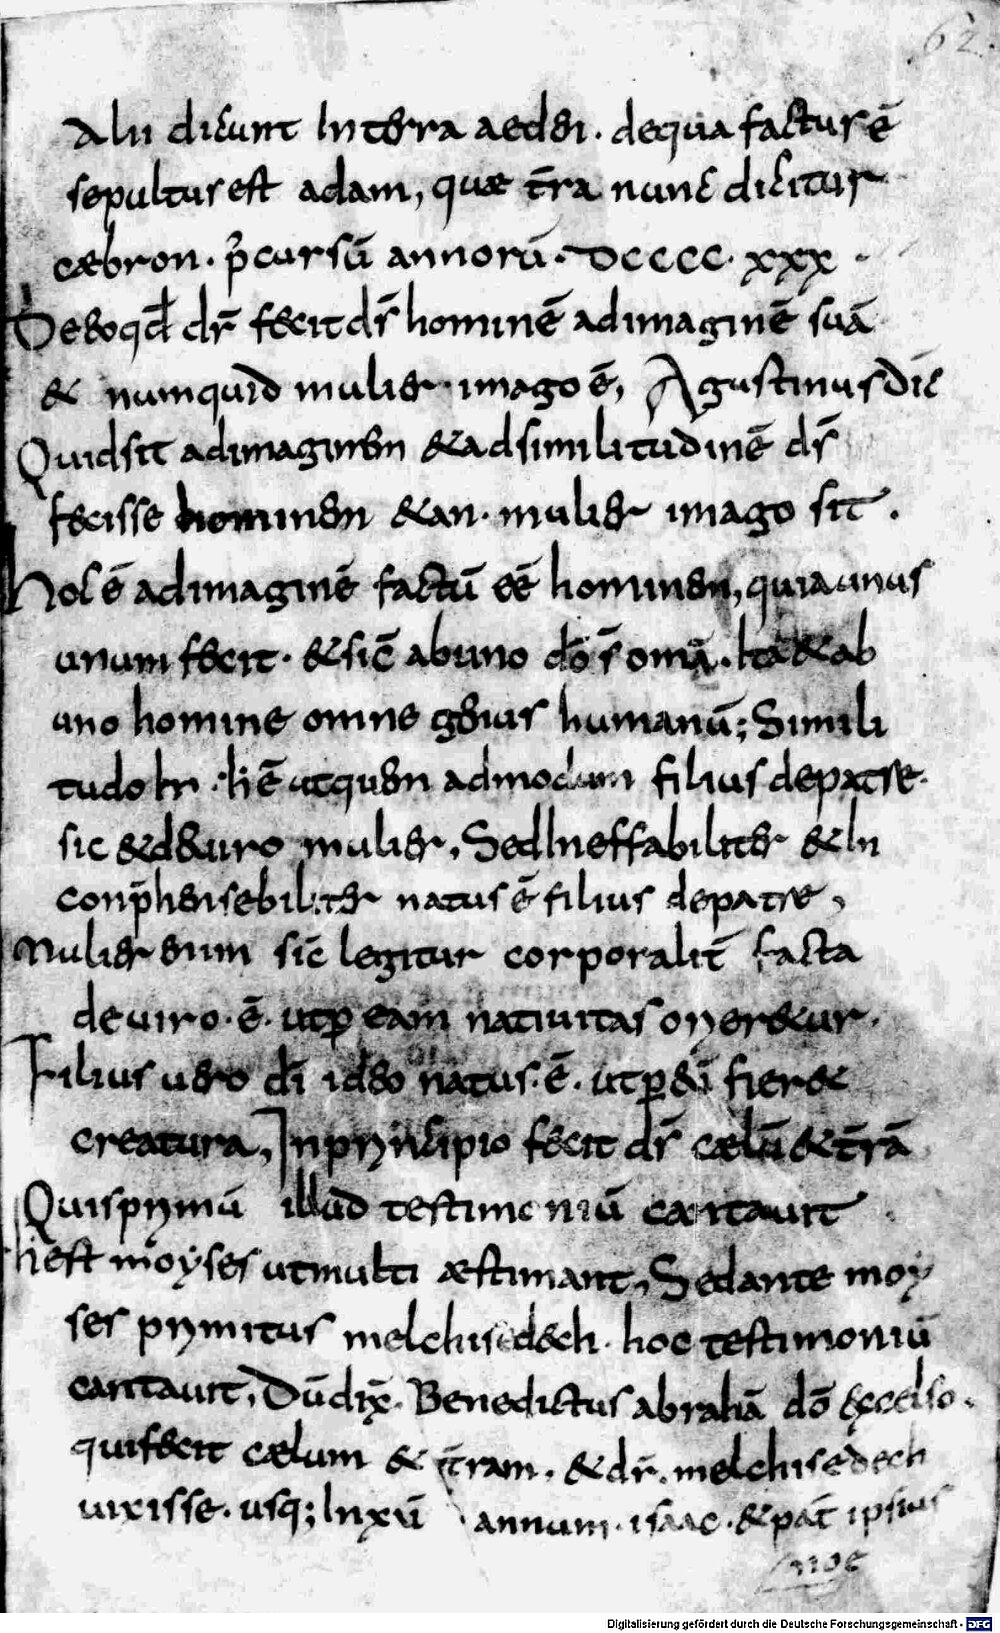 62.
Alii dicunt In terra aedei. de qua factus ē
sepultus est adam, quae t̄ra nunc dicitur
caebron. p̄ cursū annorū. DCCCC. xxx.
De eo qđ dr̄ fecit dr̄ hominē ad imaginē suā
& numquid mulier imago ē, Agustinus dic̄
Quid sit ad imaginem & ad similitudinē dr̄
fecisse hominem & an. mulier imago sit.
Hoc ē ad imaginē factū eē hominem, quia unus
unum fecit. & sic̄ ab uno dō s̄ omā. Ita & ab
uno homine omne genus humanū; Simili
tudo ē ut quem admodum filius de patre.
sic & de uiro mulier, Sed Ineffabiliter & In
conp̄hensebiliter natus ē filius de patre,
Mulier enim sic̄ legitur corporalit̄ facta
de uiro. ē. ut ꝑ eam natiuitas oriretur.
Filius uero dī ideo natus. ē. ut ꝑ eū fieret
creatura, In principio fecit dr̄ caelū & t̄rā
Quis primū illud testimoniū cantauit
est moyses ut multi aestimant, Sed ante moy
ses primitus melchisedech. hoc testimoniū
cantauit, Dū dix̄. Benedictus abrahā dō excelso.
qui fecit caelum & t̄ram, & dr̄. melchisedech
uixisse. usq; In xū annum. isaac. & pat̄ ipsius